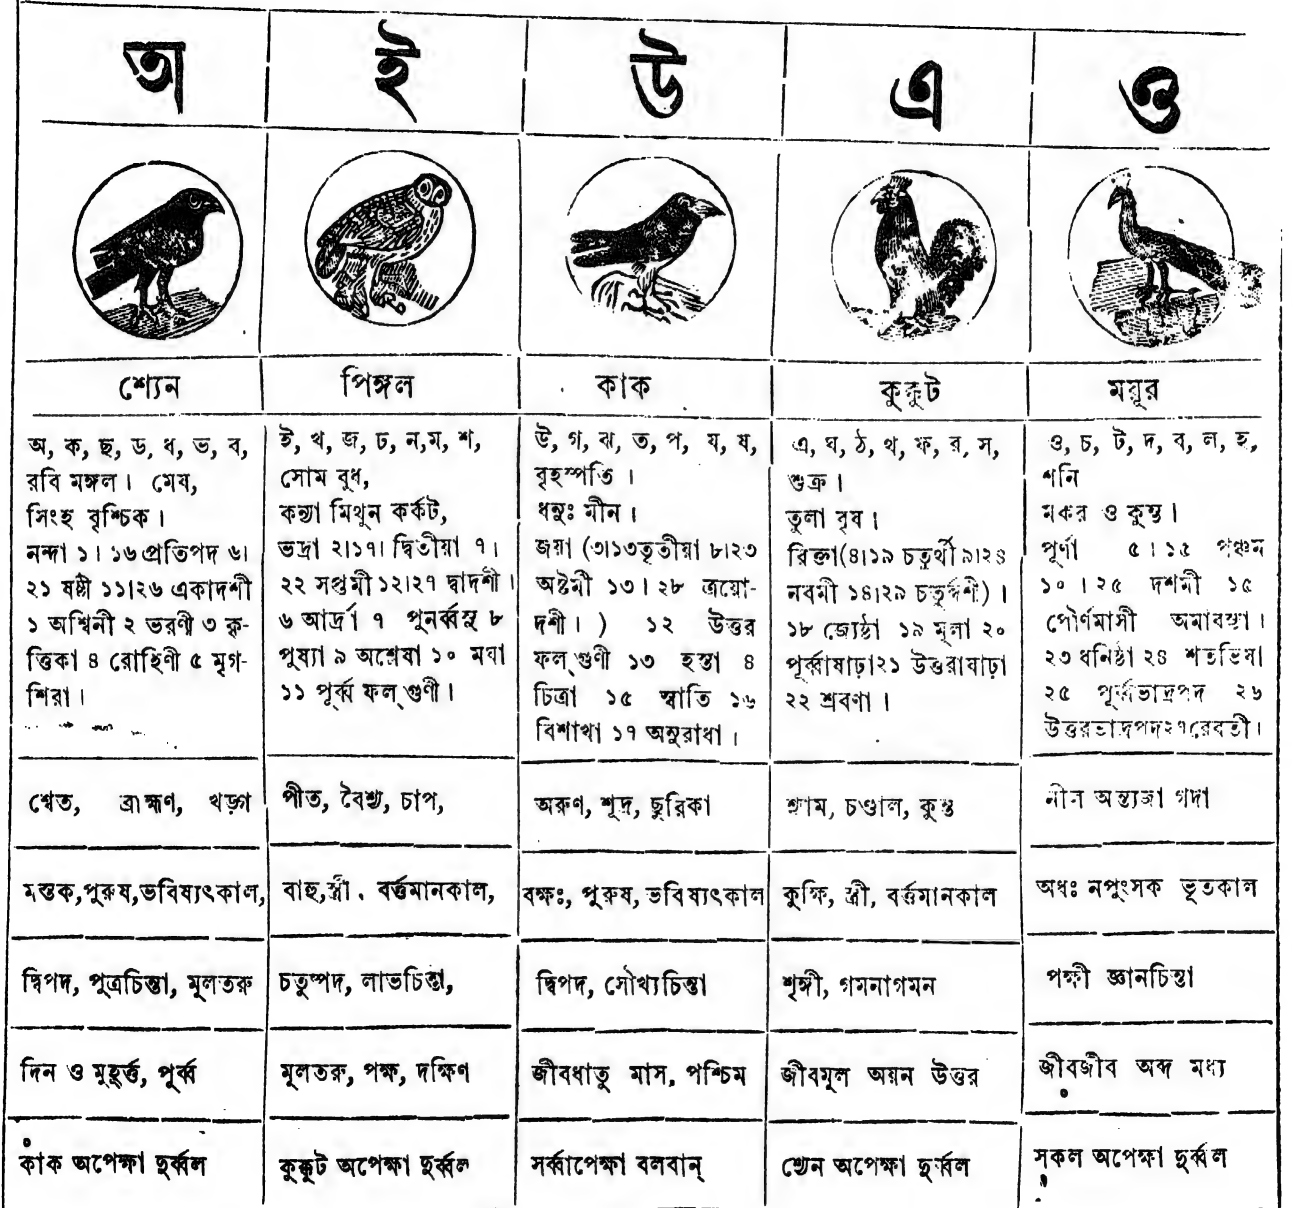 অ ই উ এ ও
শ্যেন পিঙ্গল কাক কুক্কুট ময়ূর
অ, ক, ছ, ড, ধ, ভ, ব,
রবি মঙ্গল। মেষ,
সিংহ বৃশ্চিক।
নন্দা ১। ১৬ প্রতিপদ ৬।
২১ ষষ্ঠী ১১।২৬ একাদশী
১ অশ্বিনী ২ ভরণী ৩ কৃ-
ত্তিকা ৪ রোহিণী ৫ মৃগ-
শিরা।
ই, খ, জ, ঢ, ন,ম, শ,
সোম বুধ,
কন্যা মিথুন কর্কট,
ভদ্রা ২।১৭। দ্বিতীয়া ৭।
২২ সপ্তমী ১২।২৭ দ্বাদশী।
৬ আর্দ্রা ৭ পুনর্ব্বসু ৮
পুষ্যা ৯ অশ্লেষা ১০ মঘা
১১ পূর্ব্ব ফল্গুণী।
উ, গ, ঝ, ত, প, য, ষ,
বৃহস্পতি।
ধনুঃ মীন।
জয়া (৩।১৩তৃতীয়া ৮।২৩
অষ্টমী ১৩।২৮ ত্রয়ো-
দশী।) ১২ উত্তর
ফল্গুণী ১৩ হস্তা ৪
চিত্রা ১৫ স্বাতি ১৬
বিশাখা ১৭ অনুরাধা।
এ, ঘ, ঠ, থ, ফ, র, স,
শুক্র।
তুলা বৃষ।
রিক্তা(৪।১৯ চতুর্থী ৯।২৪
নবমী ১৪।২৯ চতুর্দ্দশী)।
১৮ জ্যেষ্ঠা ১৯ মূলা ২০
পূর্ব্বাষাঢ়া২১ উত্তরাষাঢ়া
২২ শ্রবণা।
ও, চ, ট, দ, ব, ল, হ,
শনি
মকর ও কুম্ভ।
পূর্ণা ৫। ১৫ পঞ্চম
১০। ২৫ দশমী ১৫
পৌর্ণমাসী অমাবস্যা।
২৩ ধনিষ্ঠা ২৪ শতভিষা
২৫ পূর্ব্বভাদ্রপদ ২৬
উত্তরভাদ্রপদ২৭রেবতী।
শ্বেত, ব্রাহ্মণ, খড়্গ
পীত, বৈশ্য, চাপ,
অরুণ, শূদ্র, ছুরিকা
শ্যাম, চণ্ডাল, কুন্ত
নীল অন্ত্যজা গদা
মস্তক,পুরুষ,ভবিষ্যৎকাল,
বাহু,স্ত্রী. বর্ত্তমানকাল,
বক্ষঃ, পুরুষ, ভবিষ্যৎকাল
কুক্ষি, স্ত্রী, বর্ত্তমানকাল
অধঃ নপুংসক ভূতকাল
দ্বিপদ, পুত্রচিন্তা, মূলতরু
চতুষ্পদ, লাভচিন্তা,
দ্বিপদ, সৌখ্যচিন্তা
শৃঙ্গী, গমনাগমন
পক্ষী জ্ঞানচিন্তা
দিন ও মুহূর্ত্ত, পূর্ব্ব
মূলতরু, পক্ষ, দক্ষিণ
জীবধাতু মাস, পশ্চিম
জীবমূল অয়ন উত্তর
জীবজীব অব্দ মধ্য
কাক অপেক্ষা দুর্ব্বল
কুক্কুট অপেক্ষা দুর্ব্বল
সর্ব্বাপেক্ষা বলবান্
শ্যেন অপেক্ষা দুর্ব্বল
সকল অপেক্ষা দুর্ব্বল